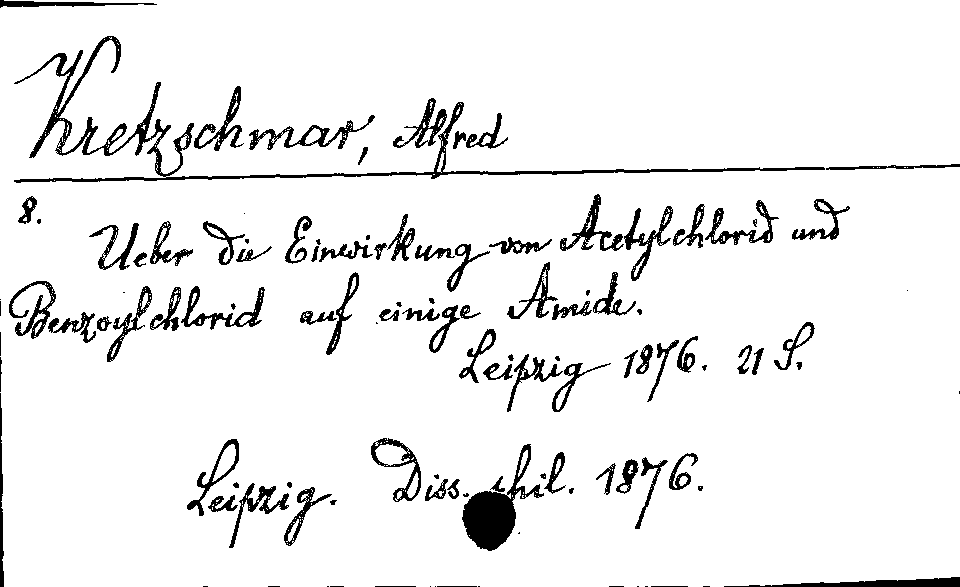 Kretzschmar, Alfred
8.
Ueber die Einwirkung von Acetylchlorid und
Benzoylchlorid auf einige Amide.
Leipzig 1876. 21 S.
Leipzig. Diss. phil. 1876.